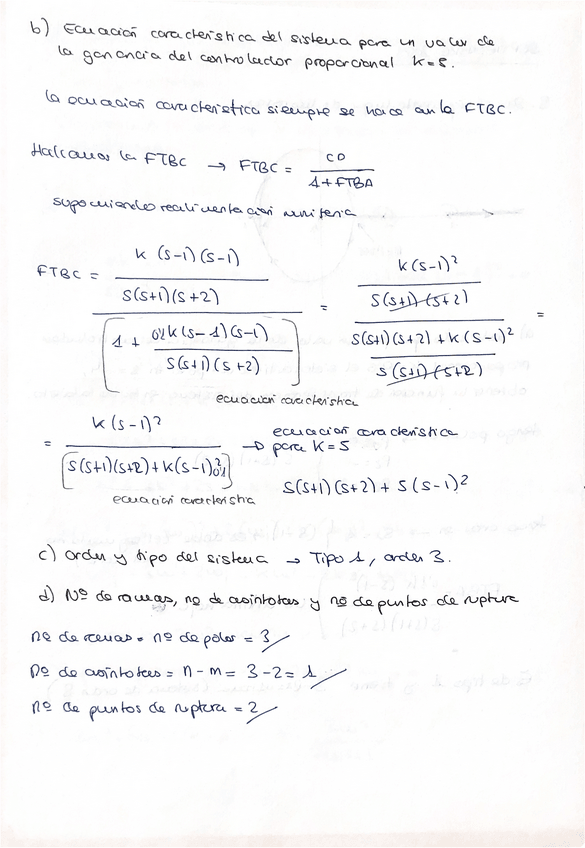 b) Ecuación característica del sistema para un valor de
la ganancia del controlador proporcional K=5.
la ecuación característica siempre se hace con la FTBC.
Hallamos la FTBC → FTBC = CD / 1+FTBA
suponiendo realimentación unitaria
FTBC = K (S-1) (S-1) / S(S+1)(S+2) / [1 + 0,1K(S-1)(S-1) / S(S+1)(S+2)] = K(S-1)² / S(S+1)(S+2) / S(S+1)(S+2) + K(S-1)² / S(S+1)(S+2) =
ecuación característica
= K(S-1)² / [S(S+1)(S+2)+K(S-1)²0,1] → ecuación característica
para K=5
S(S+1)(S+2) + 5(S-1)²
ecuación característica
c) Orden y tipo del sistema → Tipo 1, orden 3.
d) Nº de ramas, nº de asíntotas y nº de puntos de ruptura
nº de ramas = nº de polos = 3
nº de asíntotas = n-m = 3-2 = 1
nº de puntos de ruptura = 2